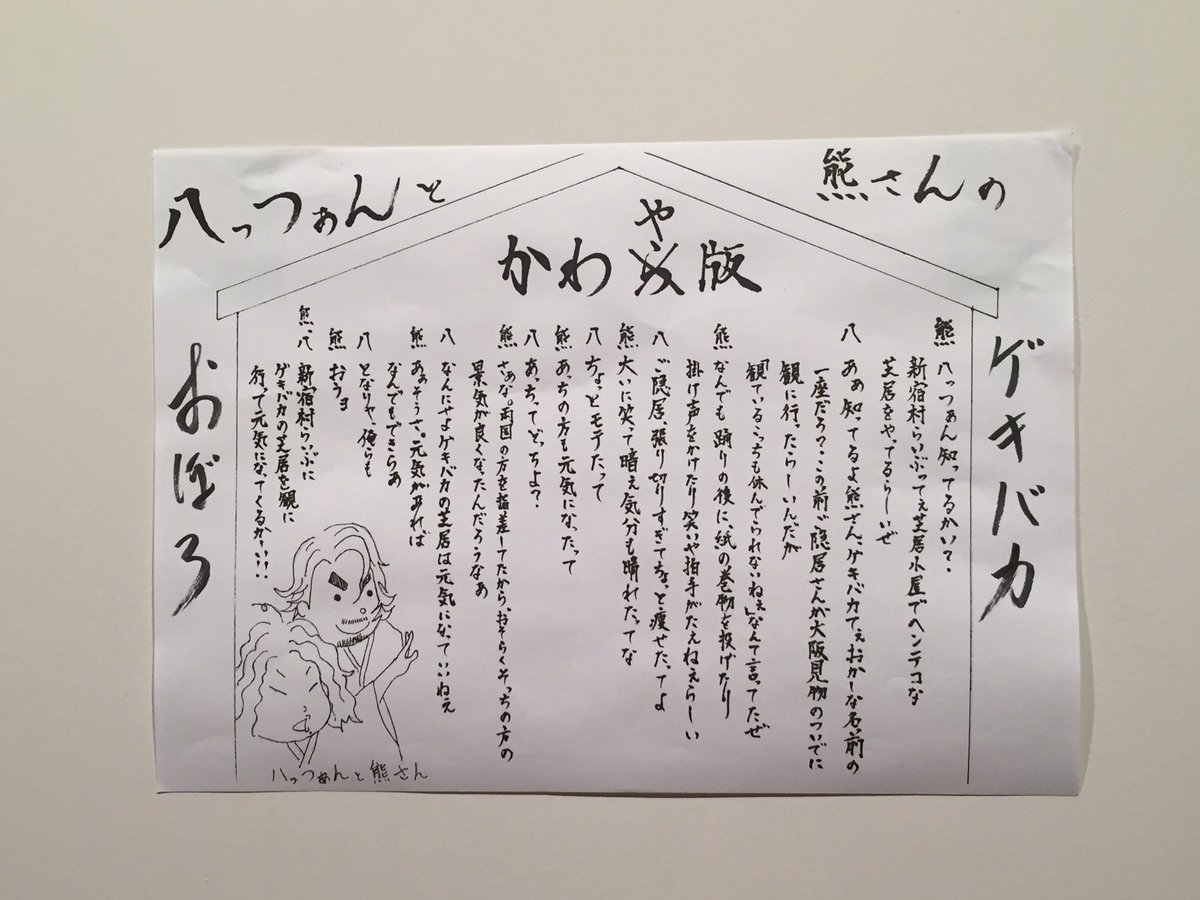 八っつぁんと
熊さんの
や
かわら版
ゲキバカ
おぼろ
熊 八っつぁん知ってるかい?
新宿村らいぶってぇ芝居小屋でヘンテコな
芝居をやってるらしいぜ
八 あぁ知ってるよ熊さん、ゲキバカてぇおかしな名前の
一座だろう?この前ご隠居さんが大阪見物のついでに
観に行ったらしいんだが
「観ているこっちも休んでられないねぇ」なんて言ってたぜ
熊 なんでも踊りの後に、紙の巻物を投げたり
掛け声をかけたり笑いや拍手がたえねえらしい
八 ご隠居、張り切りすぎてちょっと痩せたってよ
熊 大いに笑って暗え気分も晴れたってな
八 ちょっとモテたって
熊 あっちの方も元気になったって
八 あっちってどっちよ?
熊 さぁな。両国の方を指差してたから、おそらくそっちの方の
景気が良くなったんだろうなぁ
八 なんにせよゲキバカの芝居は元気になっていいねえ
熊 あぁそうさ。元気があれば
なんでもできらぁ
八 となりゃ、俺らも
熊 おうヨ
熊・八 新宿村らいぶに
ゲキバカの芝居を観に
行って元気になってくるか!!!!
八っつぁんと熊さん